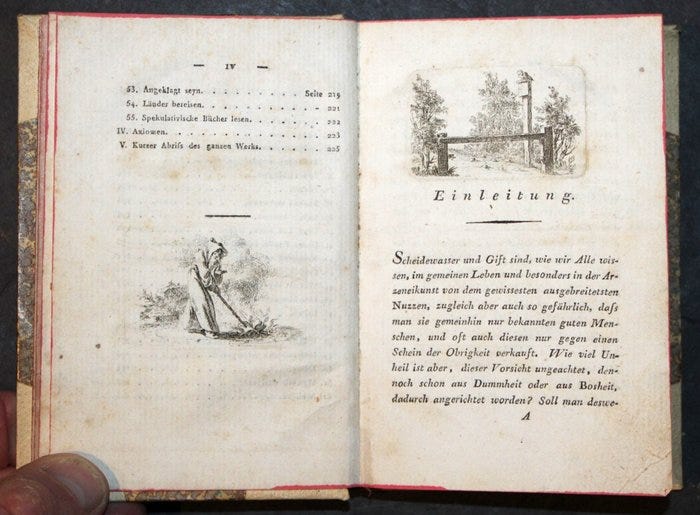 — IV —
53. Angeklagt seyn. . . . . . . . . . Seite 219
54. Länder bereisen. . . . . . . . . . - 221
55. Spekulativische Bücher lesen. . . . . . . - 222
IV. Axiomen. . . . . . . . . . . . . - 223
V. Kurzer Abriſs des ganzen Werks. . . . . . - 225
Einleitung.
Scheidewasser und Gift sind, wie wir Alle wis-
sen, im gemeinen Leben und besonders in der Ar-
zeneikunst von dem gewissesten ausgebreitetsten
Nuzzen, zugleich aber auch so gefährlich, daſs
man sie gemeinhin nur bekannten guten Men-
schen, und oft auch diesen nur gegen einen
Schein der Obrigkeit verkauft. Wie viel Un-
heil ist aber, dieser Vorsicht ungeachtet, den-
noch schon aus Dummheit oder aus Bosheit,
dadurch angerichtet worden? Soll man deswe-
A